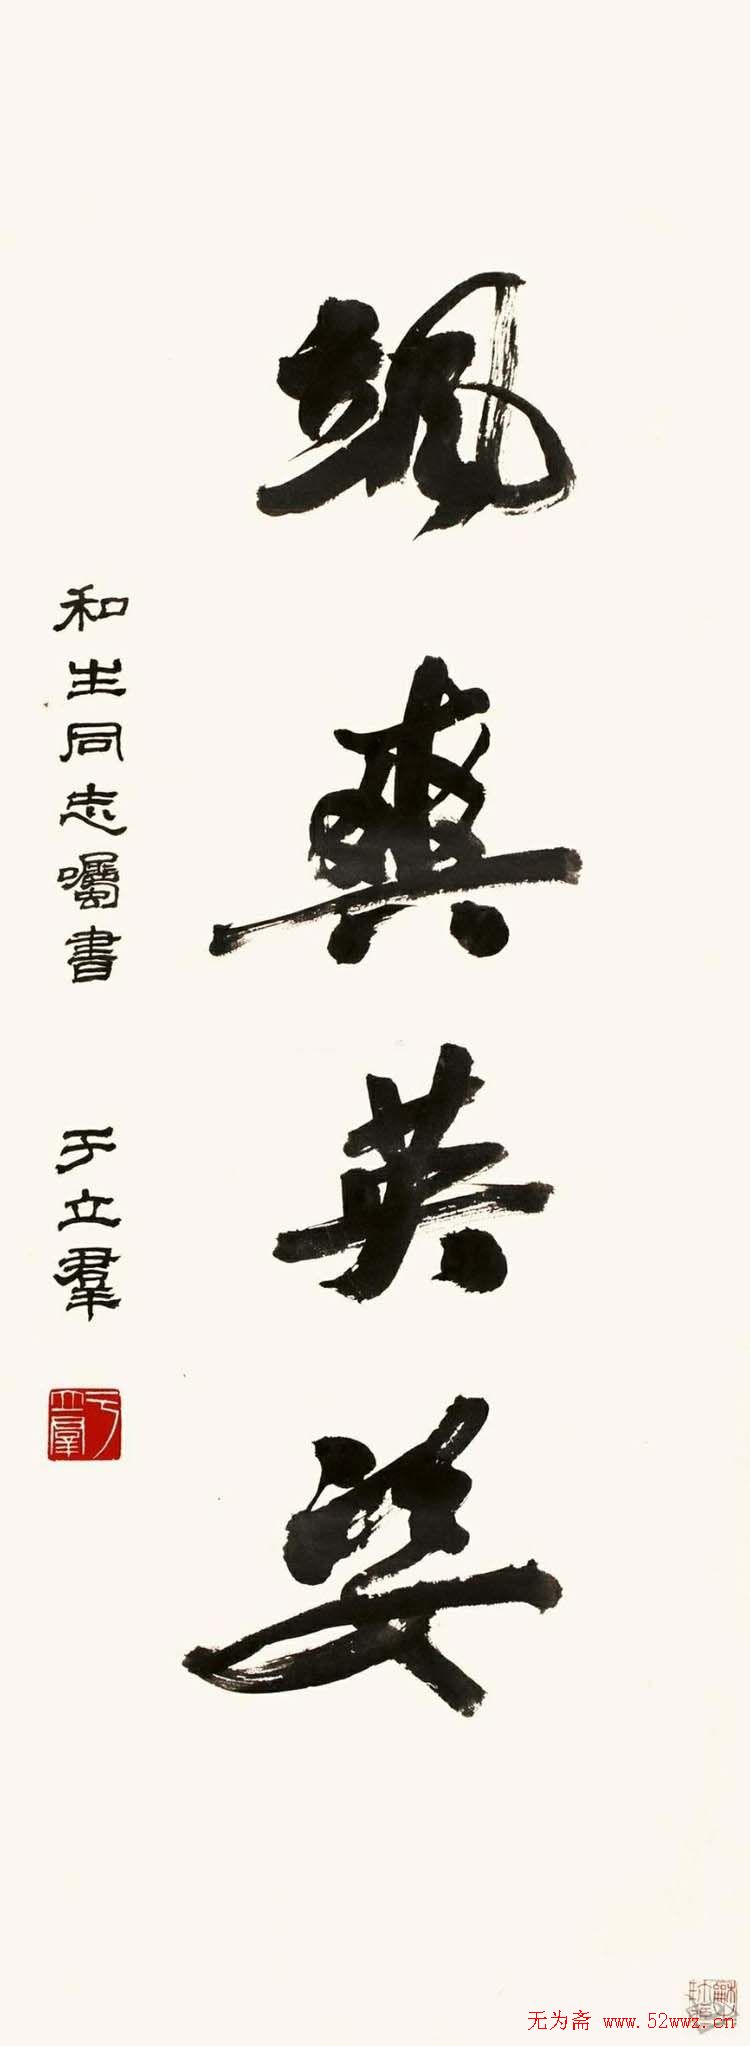 颯爽英姿
和生同志囑書 于立羣
于立羣
无为斋 www.52wwz.cn